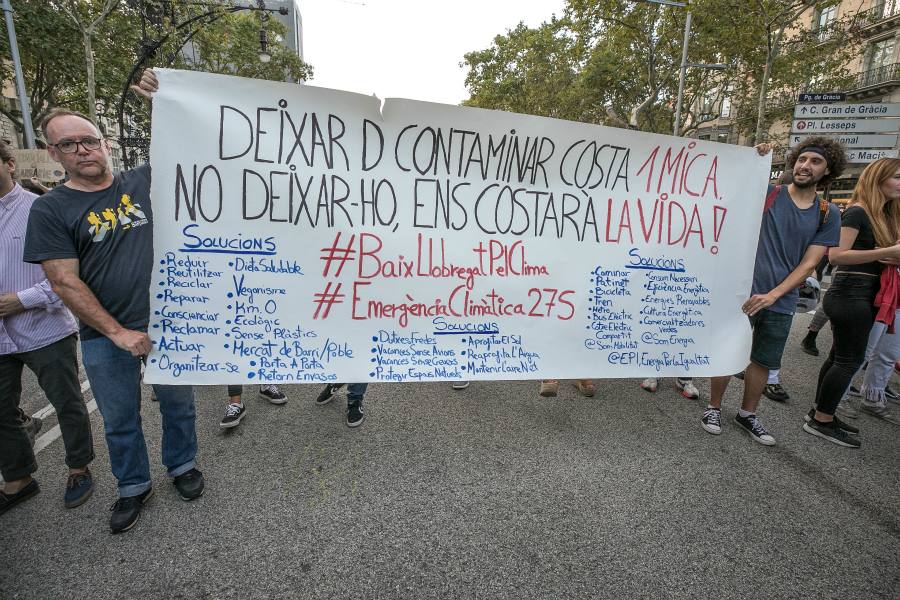 DEIXAR D CONTAMINAR COSTA 1 MICA.
NO DEIXAR-HO, ENS COSTARÀ LA VIDA!
#BaixLlobregatPelClima
#EmergènciaClimàtica27S
SOLUCIONS
• Reduir
• Reutilitzar
• Reciclar
• Reparar
• Conscienciar
• Reclamar
• Actuar
• Organitzar-se
• Dieta Saludable
• Veganisme
• Km.0
• Ecològic
• Sense Plàstics
• Mercat de Barri/Poble
• Porta A Porta
• Retorn Envasos
SOLUCIONS
• Dutxes
• Vacances Sense Avions
• Protegir Espais Naturals
• Aprofitar El Sol
• Reaprofita L'Aigua
• Mantenir Carrer Net
SOLUCIONS
• Caminar
• Patinet
• Bicicleta
• Tren
• Metro
• Bus Elèctric
• Cotxe Elèctric
Compartit
@Som Mobilitat
• Consum Necessari
• Eficiència Energètica
• Energies Renovables
• Cultura Energètica
• Comercialitzadores
verdes
@Som Energia
@EPI, Energia Per la Igualtat
Pg. de Gràcia
C. Gran de Gràcia
Pl. Lesseps